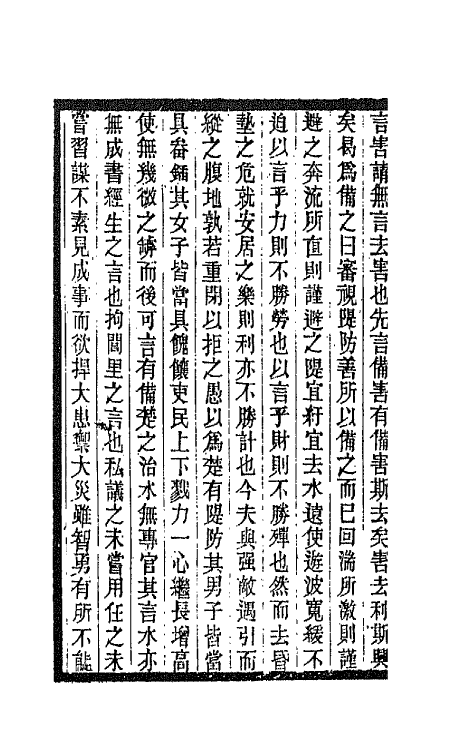 言害請無言去害也先言備害有備害斯去矣害去利斯興
矣曷爲備之曰審視隄防善所以備之而已回湍所激則謹
避之奔流所直則謹避之隄宜紆宜去水遠使遊波寬緩不
迫以言乎力則不勝勞也以言乎財則不勝殫也然而去昏
墊之危就安居之樂則利亦不勝計也今夫與强敵遇引而
縱之腹地孰若重閉以拒之愚以爲楚有隄防其男子皆當
具畚鍤其女子皆當具餽饟吏民上下戮力一心繼長增高
使無幾微之罅而後可言有備楚之治水無專官其言水亦
無成書經生之言也拘閭里之言也私議之未嘗用任之未
嘗習謀不素見成事而欲捍大患禦大災雖智勇有所不能